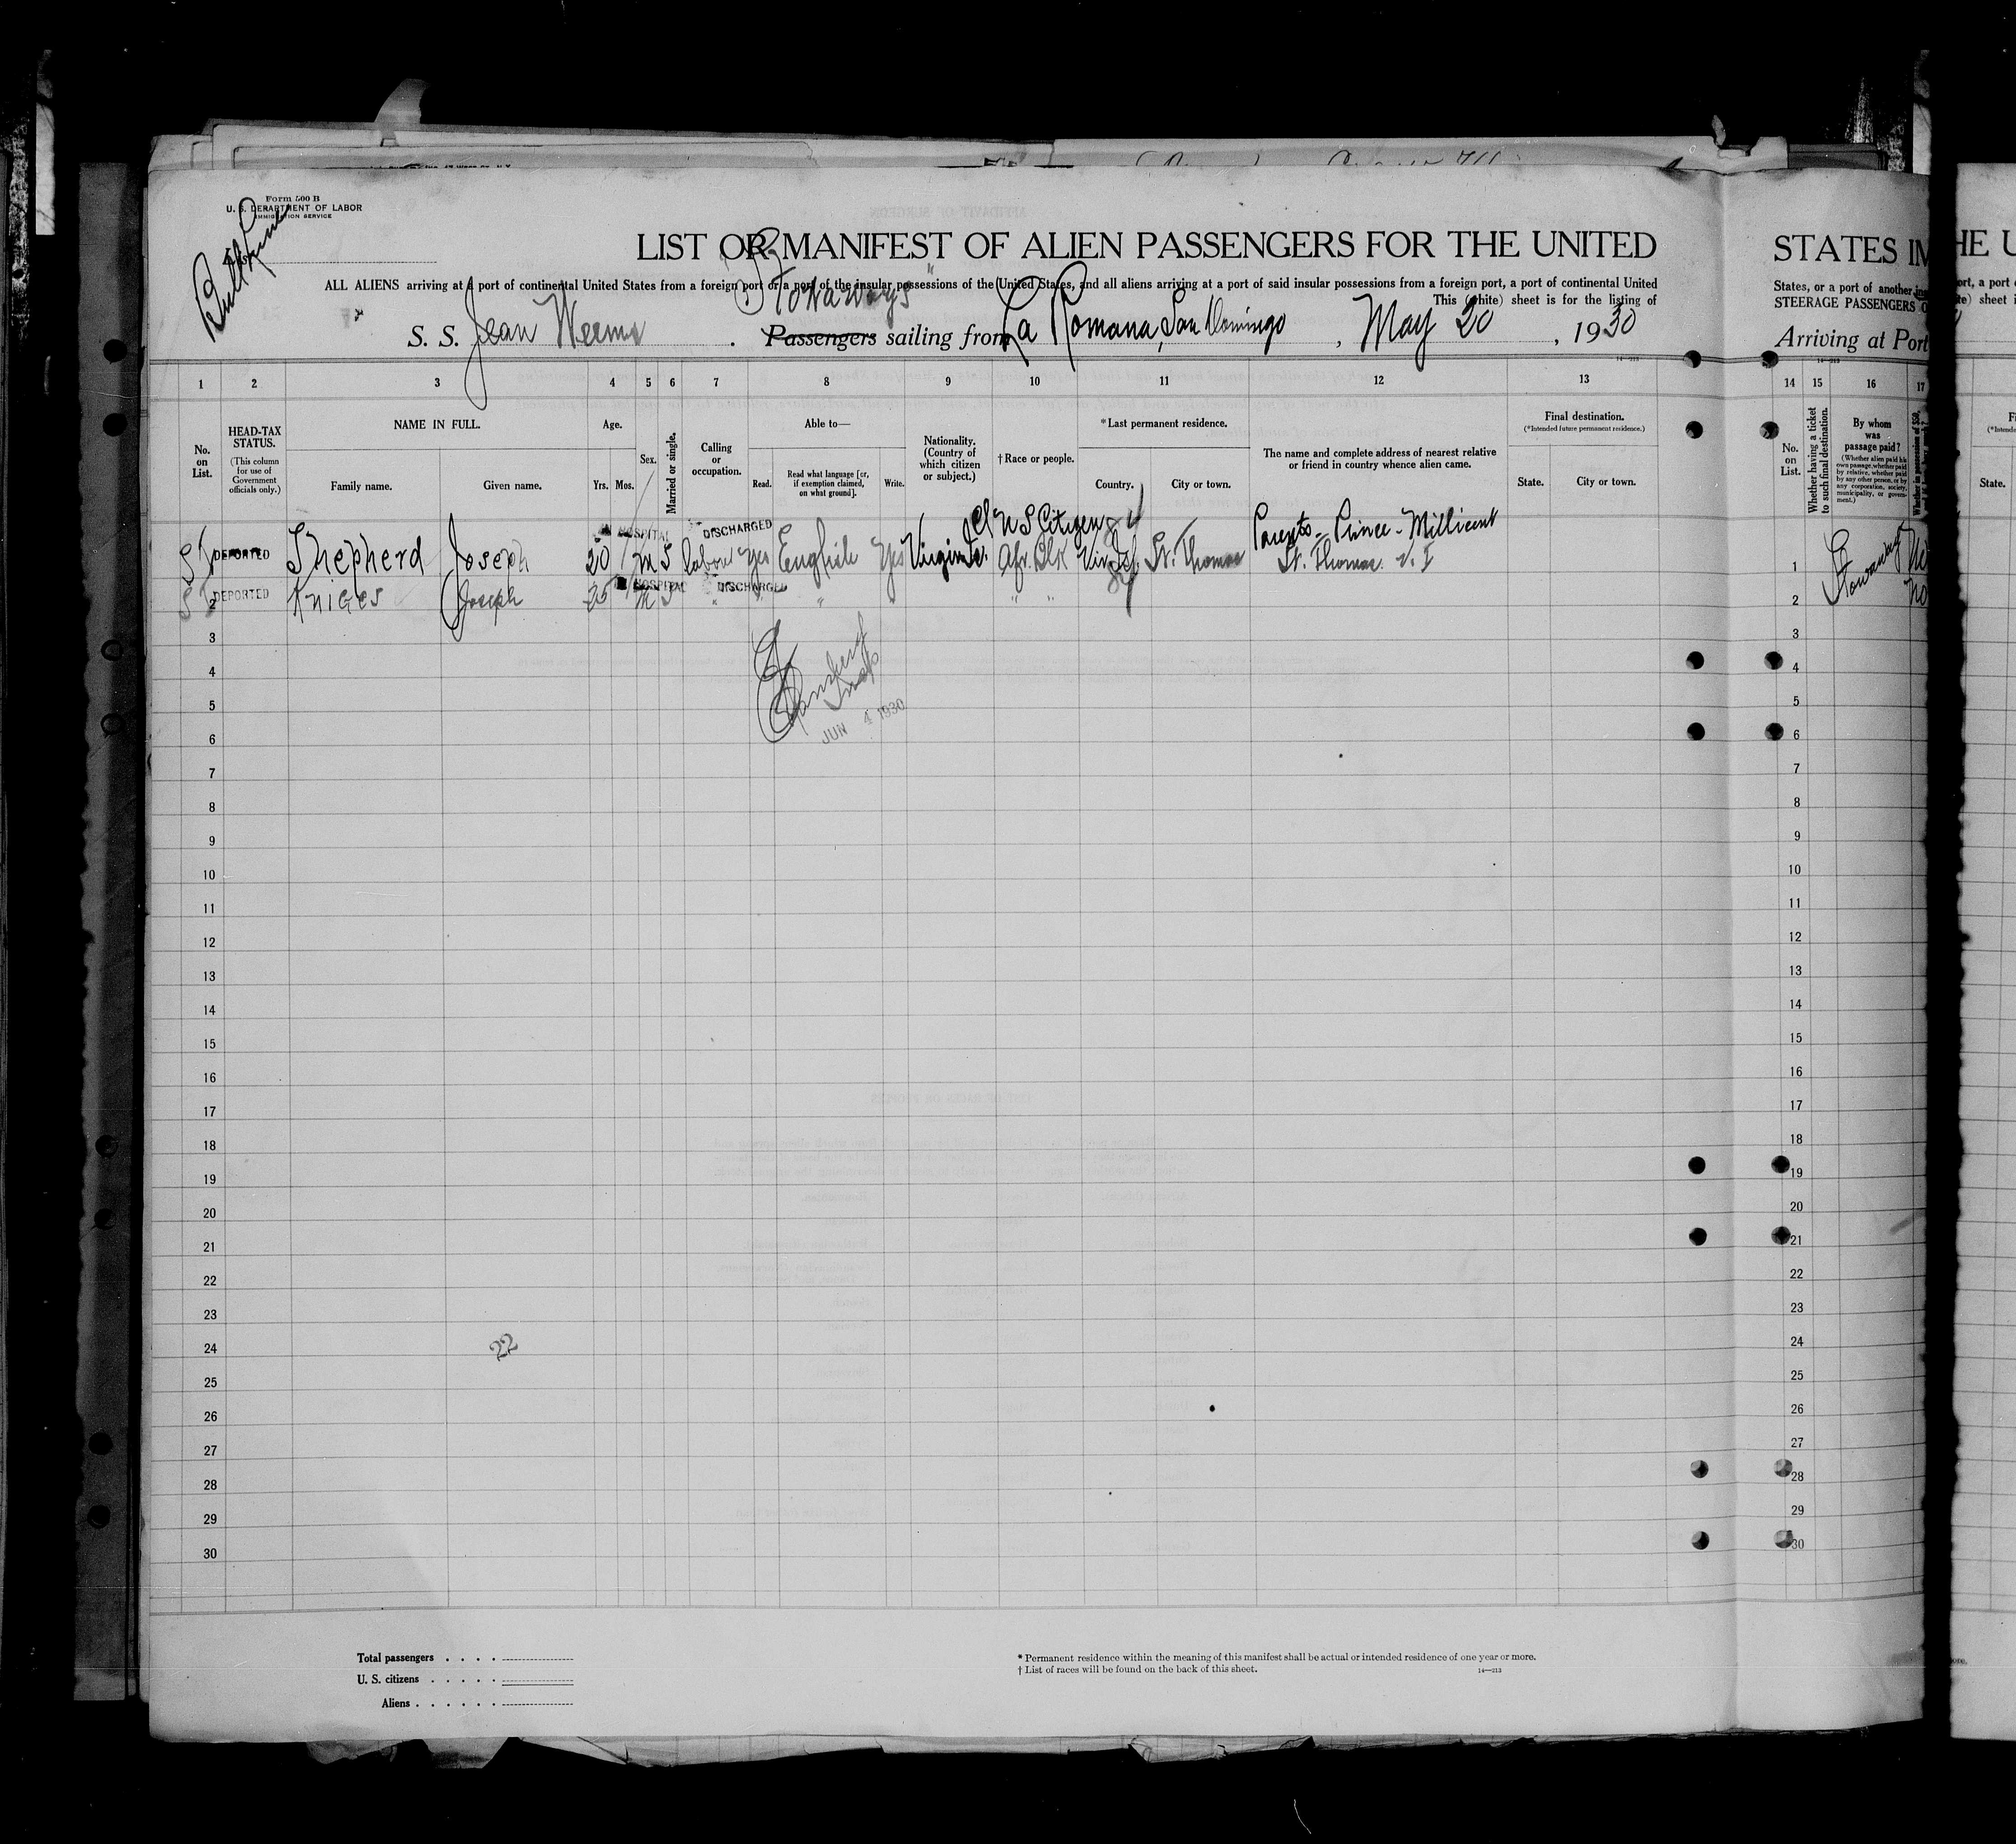 Form 500 B
U. S. DEPARTMENT OF LABOR
IMMIGRATION SERVICE
Bull Line
LIST OR MANIFEST OF ALIEN PASSENGERS FOR THE UNITED
ALL ALIENS arriving at a port of continental United States from a foreign port or a port of the insular possessions of the United States, and all aliens arriving at a port of said insular possessions from a foreign port, a port of continental United
This (white) sheet is for the listing of
Stowaways
S. S. Jean Weems . Passengers sailing from La Romana, San Domingo , May 20 , 1930
1 2 3 4 5 6 7 8 9 10 11 12 13
No. on List.
HEAD-TAX STATUS.
(This column for use of Government officials only.)
NAME IN FULL.
Family name. Given name.
Age.
Yrs. Mos.
Sex.
Married or single.
Calling or occupation.
Able to—
Read. Read what language [or, if exemption claimed, on what ground]. Write.
Nationality. (Country of which citizen or subject.)
†Race or people.
*Last permanent residence.
Country. City or town.
The name and complete address of nearest relative or friend in country whence alien came.
Final destination.
(*Intended future permanent residence.)
State. City or town.
U S Citizen
IN HOSPITAL DISCHARGED
Parents - Prince - Millicent
DEPORTED Shepherd Joseph 20 M S labour Yes English Yes Virgin Is. Afr. Blk Vir. Isl. St. Thomas St. Thomas. V. I
HOSPITAL DISCHARGED
2 DEPORTED Kniges Joseph 35 M S " " " " "
3
4
5
6
JUN 4 1930
7
8
9
10
11
12
13
14
15
16
17
18
19
20
21
22
23
24
22
25
26
27
28
29
30
Total passengers
U. S. citizens
Aliens
* Permanent residence within the meaning of this manifest shall be actual or intended residence of one year or more.
† List of races will be found on the back of this sheet.
14—213
STATES IM
States, or a port of another
STEERAGE PASSENGERS O
Arriving at Port
14 15 16 17
No. on List.
Whether having a ticket to such final destination.
By whom was passage paid?
(Whether alien paid his own passage, whether paid by relative, whether paid by any other person, or by any corporation, society, municipality, or government.)
Stowaway
1
2 No
3
4
5
6
7
8
9
10
11
12
13
14
15
16
17
18
19
20
21
22
23
24
25
26
27
28
29
30
HE U
State.